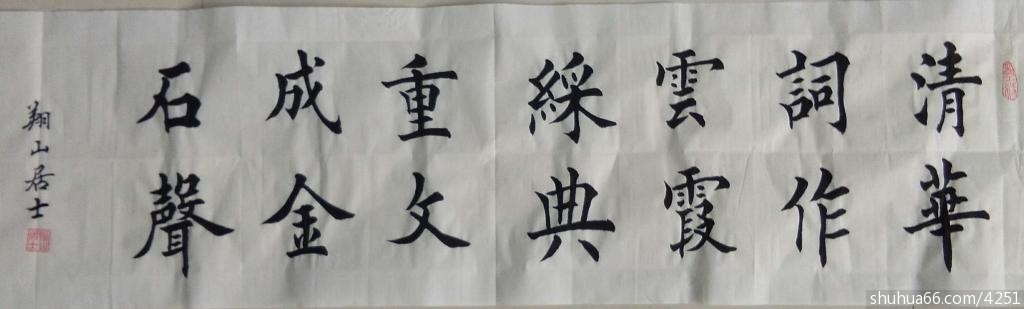 清華
詞作
雲霞
綵典
重文
成金
石聲
翔山居士
shuhua66.com/4251